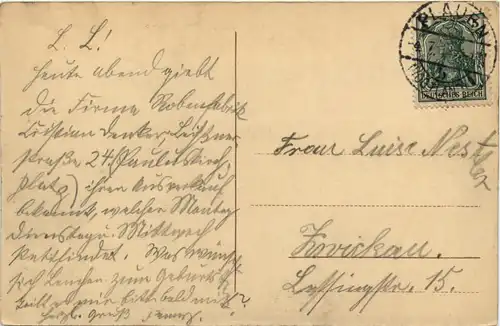 L. L!
Heute abend giebt
die Firma Robenfabrik
Christian Denker, Leißner
straße 24 (Pauluskirch
platz) ihren Ausverkauf
bekannt, welcher Montag
Dienstag u Mittwoch
stattfindet. Was wünscht
sich Lenchen zum Geburtstg?
Teilt es mir bitte bald mit
Herzl. Gruß
PLAUEN
DEUTSCHES REICH
Frau Luise Nestler
Zwickau.
Lessingstr. 15.